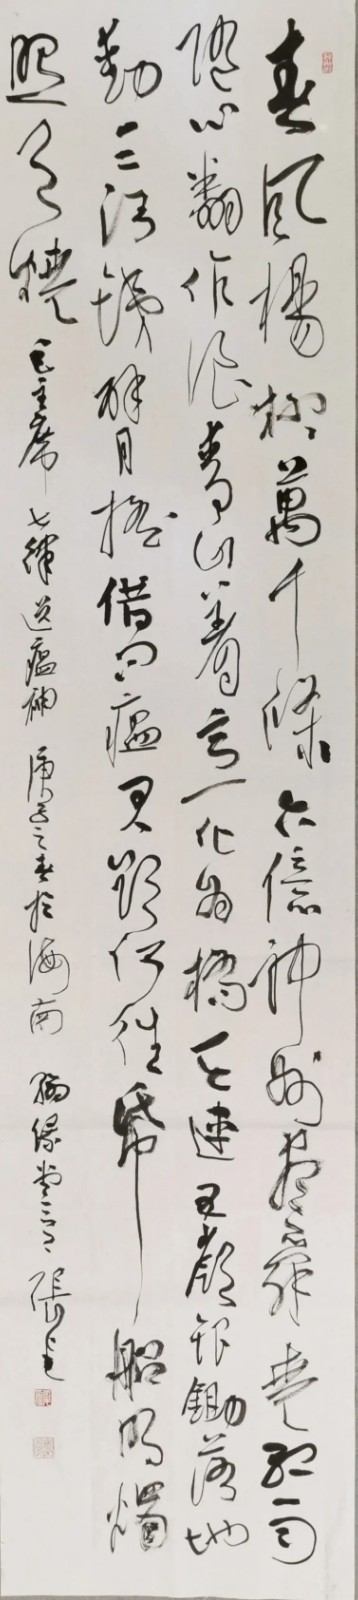 春風楊柳萬千條六億神州盡舜堯紅雨
隨心翻作浪青山著意化為橋天連五嶺銀鋤落地
動三河鐵臂搖借問瘟君欲何往紙船明燭
照天燒 毛主席七律送瘟神 庚子之春於海南 張